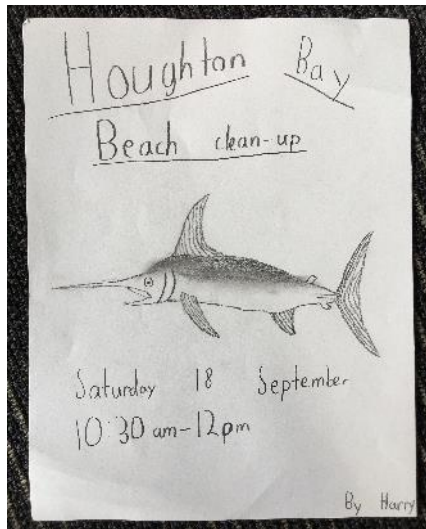 Houghton Bay
Beach clean-up
Saturday 18 September
10:30 am-12pm
By Harry